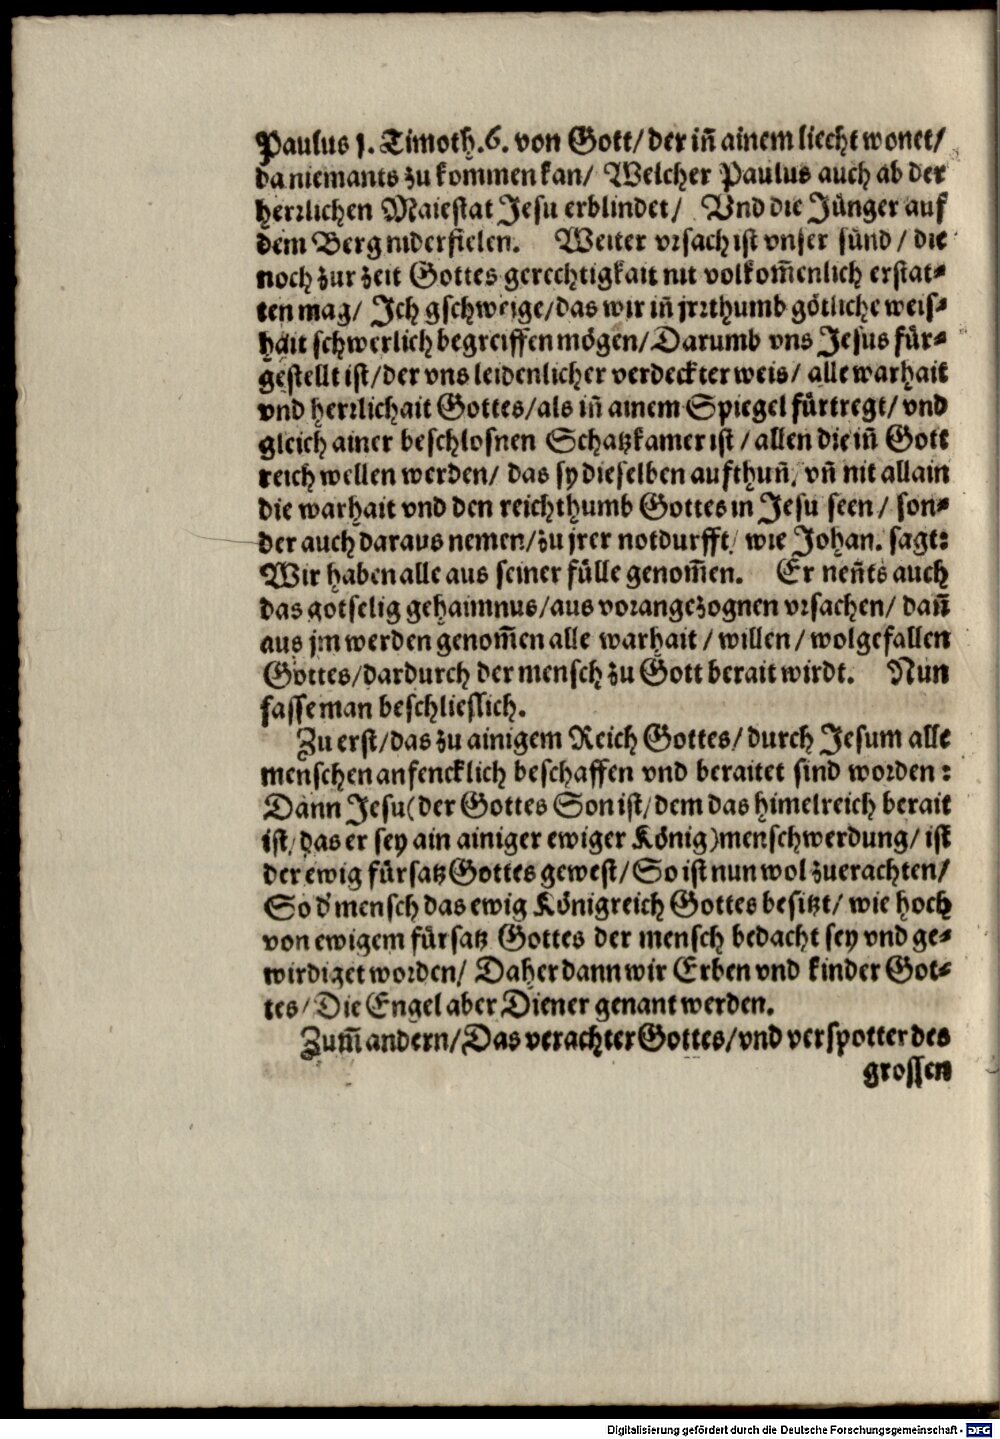 Paulus 1. Timoth. 6. von Gott/ der iñ ainem liecht wonet/
da niemants zu kommen kan/ Welcher Paulus auch ab der
herrlichen Maiestat Jesu erblindet/ Vnd die Jünger auf
dem Berg niderfielen. Weiter vrsach ist vnser sünd/ die
noch zur zeit Gottes gerechtigkait nit volkom̃enlich erstat⸗
ten mag/ Ich gschweige/ das wir iñ jrrthumb götliche weis⸗
hait schwerlich begreiffen mögen/ Darumb vns Jesus für⸗
gestellt ist/ der vns leidenlicher verdeckter weis/ alle warhait
vnd herrlichait Gottes/ als iñ ainem Spiegel fürtregt/ vnd
gleich ainer beschlosnen Schatzkamer ist/ allen die iñ Gott
reich wellen werden/ das sy dieselben aufthuñ, vñ nit allain
die warhait vnd den reichthumb Gottes in Jesu seen/ son⸗
der auch daraus nemen/ zu jrer notdurfft/ wie Johan. sagt:
Wir haben alle aus seiner fülle genom̃en. Er neñts auch
das gotselig gehaimnus/ aus vorangezognen vrsachen/ dañ
aus jm werden genom̃en alle warhait/ willen/ wolgefallen
Gottes/ dardurch der mensch zu Gott berait wirdt. Nun
fasse man beschliesslich.
Zu erst/ das zu ainigem Reich Gottes/ durch Jesum alle
menschen anfencklich beschaffen vnd beraitet sind worden:
Dann Jesu (der Gottes Son ist/ dem das himelreich berait
ist/ das er sey ain ainiger ewiger König) menschwerdung/ ist
der ewig fürsatz Gottes gewest/ So ist nun wol zuerachten/
So d' mensch das ewig Königreich Gottes besitzt/ wie hoch
von ewigem fürsatz Gottes der mensch bedacht sey vnd ge⸗
wirdiget worden/ Daher dann wir Erben vnd kinder Got⸗
tes/ Die Engel aber Diener genant werden.
Zum̃ andern/ Das verachter Gottes/ vnd verspotter des
grossen
Digitalisierung gefördert durch die Deutsche Forschungsgemeinschaft - DFG